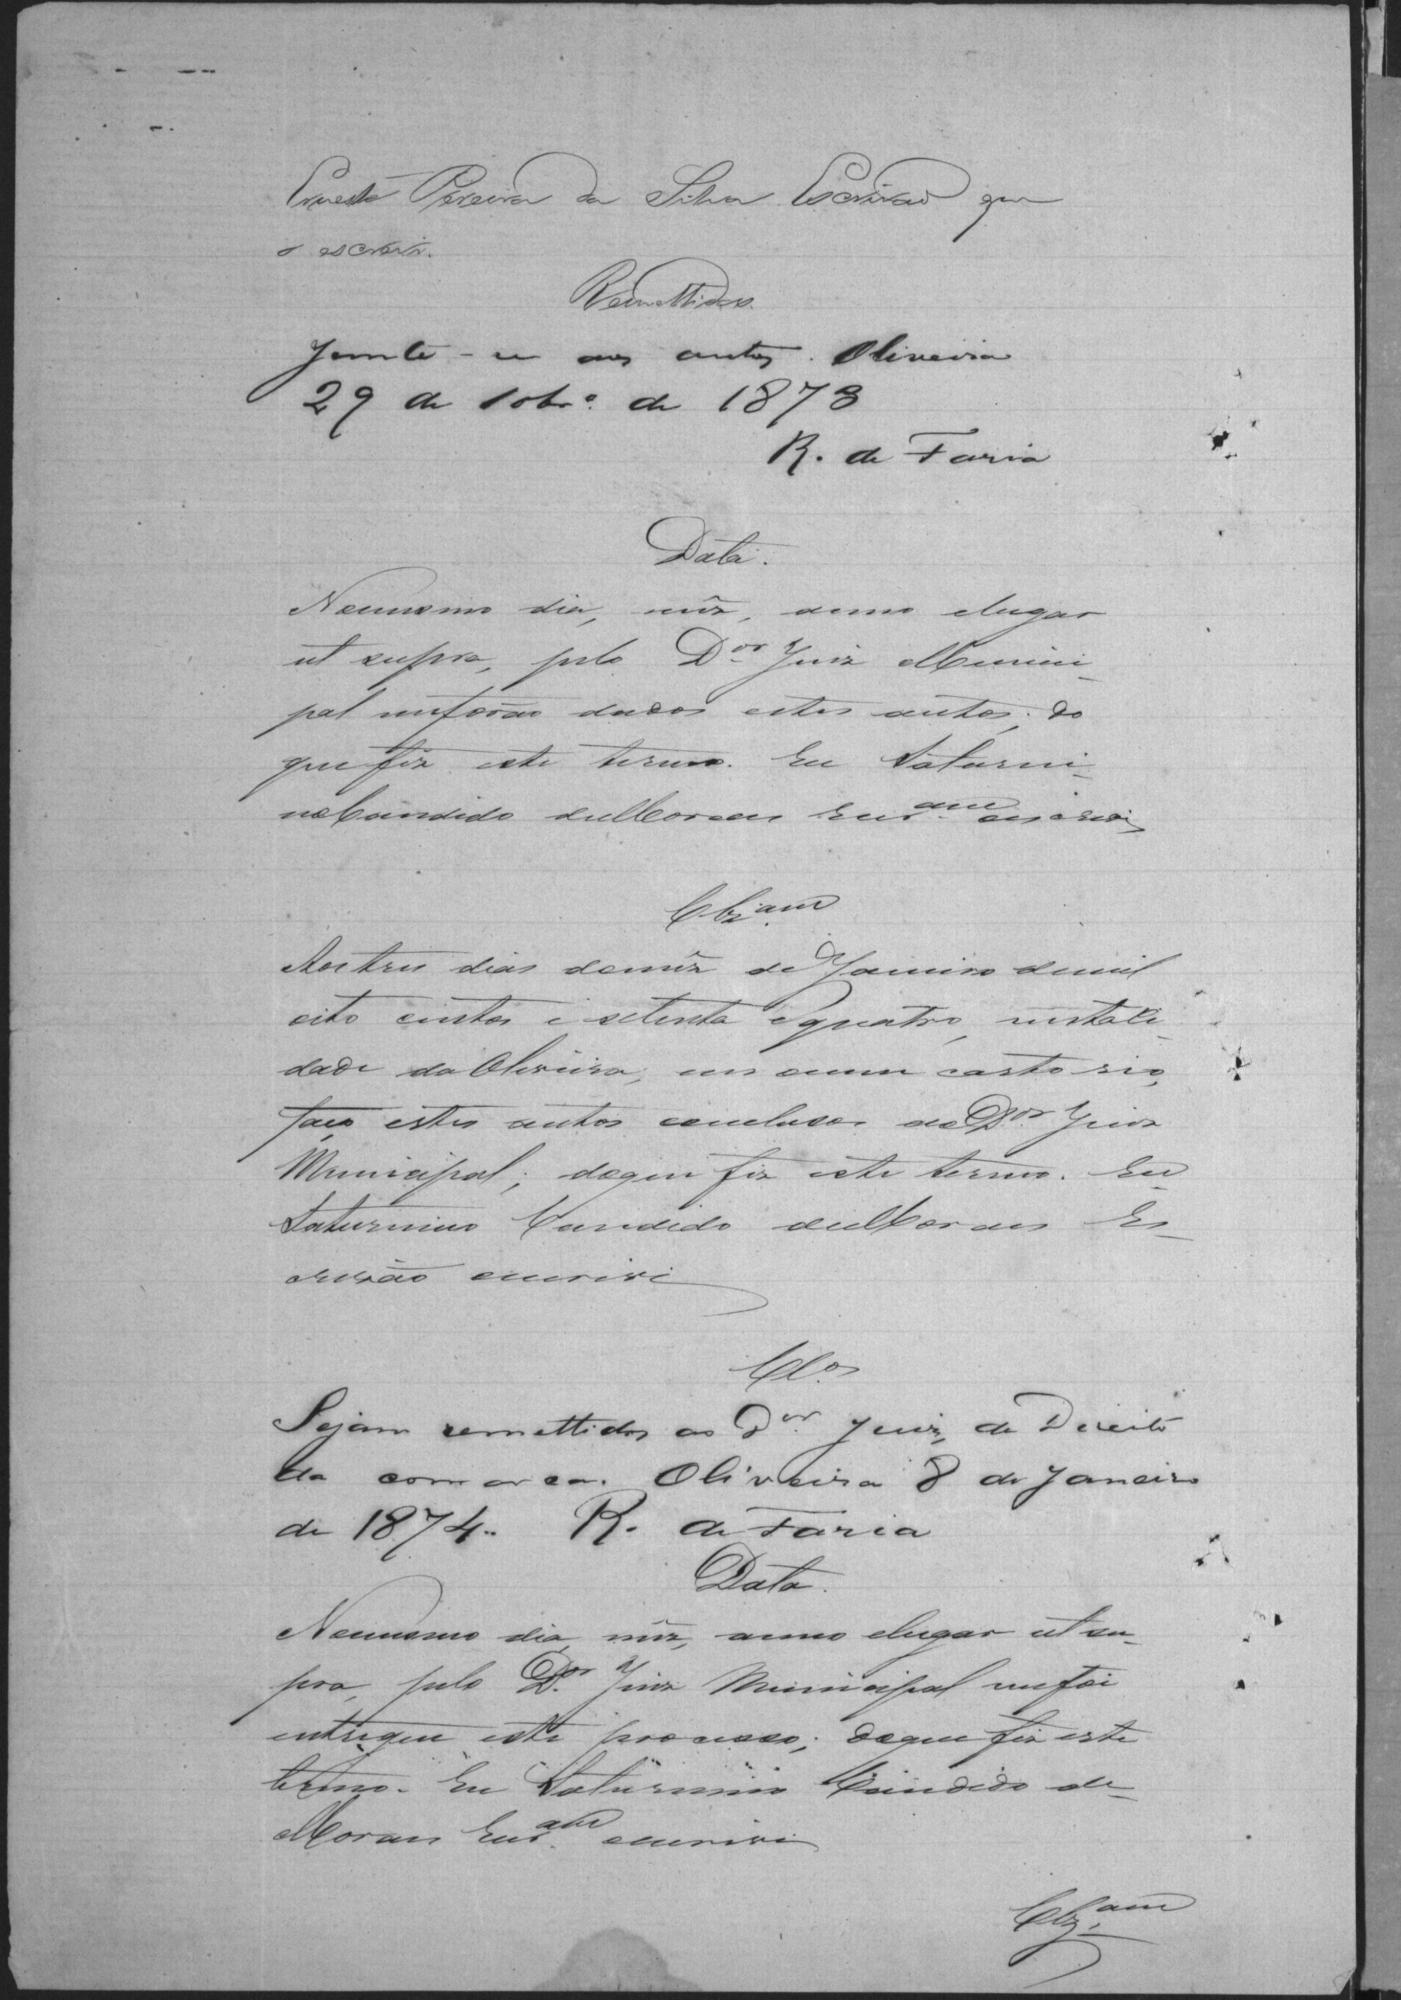 Ernesto Pereira da Silva Escrivaõ que
o escrevi.
Remettidos.
Junte-se aos autos. Oliveira
29 de 10br.º de 1873
R. de Faria
Data.
Nomesmo dia, mêz, anno elugar
ut supra, pelo D.or Juiz Munici-
pal meforão dados estes autos; do
que fiz este termo. Eu Saturni-
no Candido de Moraes Escr.am escrevi
Clz.am
Aos tres dias domêz de Janeiro demil
oito centos e setenta equatro, nesta Ci-
dade da Oliveira, em omeu cartorio,
faço estes autos conclusos ao D.or Juiz
Municipal; doque fiz este termo. Eu
Saturnino Candido de Moraes Es-
crivão escrevi
Cl.os
Sejam remettidos ao D.or Juiz de Direito
da comarca. Oliveira 8 de Janeiro
de 1874. R. de Faria
Data.
Nomesmo dia, mêz, anno elugar ut su-
pra, pelo D.or Juiz Municipal mefoi
entregue este processo; doque fiz este
termo. Eu Saturnino Candido de
Moraes Escr.am escrevi
Clz.am